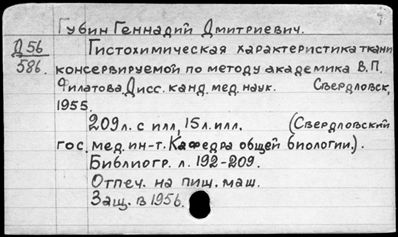 Губин Геннадий Дмитриевич.
Д56 Гистохимическая характеристика ткани
586. консервируемой по методу академика В.П.
Филатова. Дисс. канд. мед. наук. Свердловск,
1955.
209 л. с илл, 15 л. илл. (Свердловский
гос. мед. ин-т. Кафедра общей биологии.).
Библиогр. л. 192-209.
Отпеч. на пиш. маш.
Защ. в 1956.